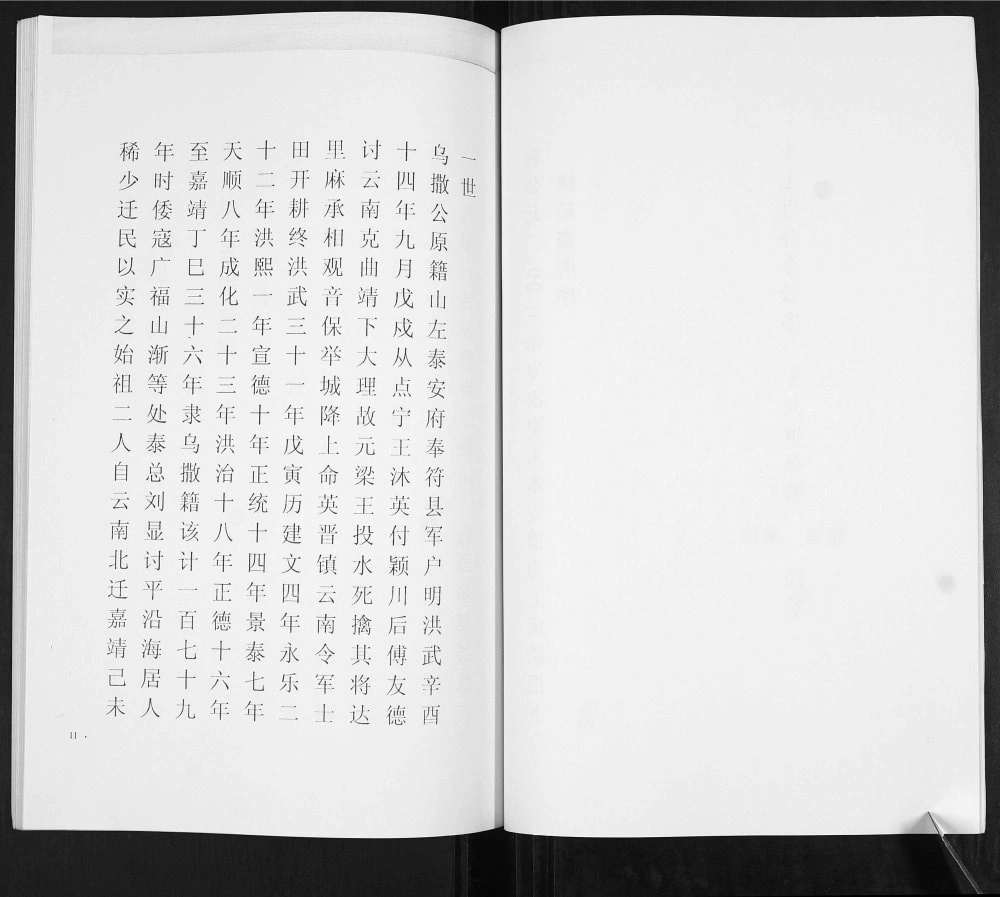 一世
乌撒公原籍山左泰安府奉符县军户明洪武辛酉
十四年九月戊戍从点宁王沐英付颖川后傅友德
讨云南克曲靖下大理故元梁王投水死擒其将达
里麻承相观音保举城降上命英晋镇云南令军士
田开耕终洪武三十一年戊寅历建文四年永乐二
十二年洪熙一年宣德十年正统十四年景泰七年
天顺八年成化二十三年洪治十八年正德十六年
至嘉靖丁巳三十六年隶乌撒籍该计一百七十九
年时倭寇广福山渐等处泰总刘显讨平沿海居人
稀少迁民以实之始祖二人自云南北迁嘉靖己未
11